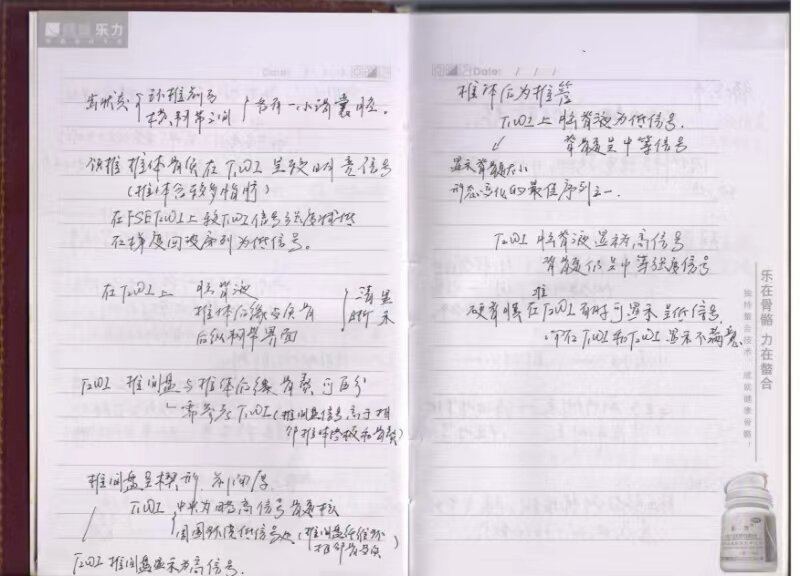 乐力
Date:
齿状突 环椎前弓 横韧带之间 各有一小滑囊腔。
颈椎椎体骨质在T1WI呈较明亮信号
(椎体含较多脂肪)
在FSET2WI上较T1WI信号强度
在梯度回波序列为低信号。
在T2WI上 脑脊液
椎体后缘与皮质 清晰显示
后纵韧带界面
T2WI 椎间盘与椎体后缘骨赘可区分
需参考T1WI(椎间盘信号高于相
邻椎体 和骨赘)
椎间盘呈楔形,前间厚
T1WI 中央为略高信号髓核
周围环绕低信号 (椎间盘纤维环
相邻骨皮质)
T2WI 椎间盘显示为高信号.
Date: / /
椎体后为椎管
T1WI上 脑脊液为低信号.
脊髓呈中等信号
显示脊髓大小
形态变化的最佳序列之一.
T2WI 脑脊液显示为高信号
脊髓仍呈中等强度信号
硬脊膜在T2WI有时可显示呈低信号
在T1WI和T2WI显示不满意.
乐在骨骼 力在螯合
独特螯合技术,成就健康骨骼!